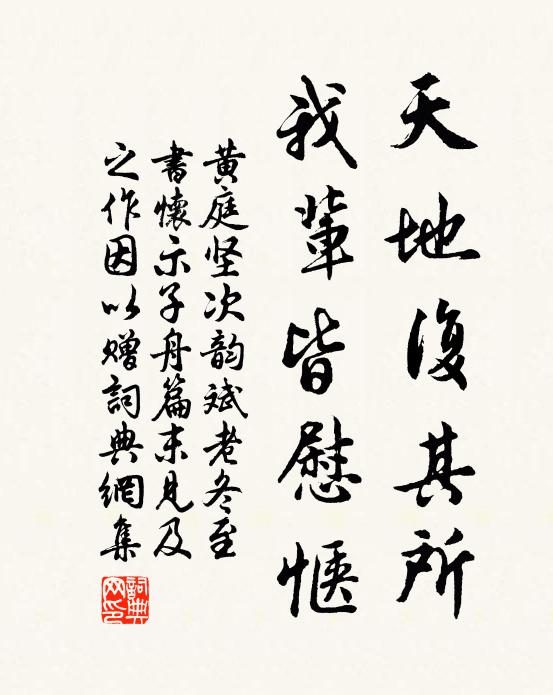 天地復其所
我輩皆慰愜
黄庭坚次韵斌老冬至
書懷示子舟篇末見及
之作因以赠詞典網集
詞典網印